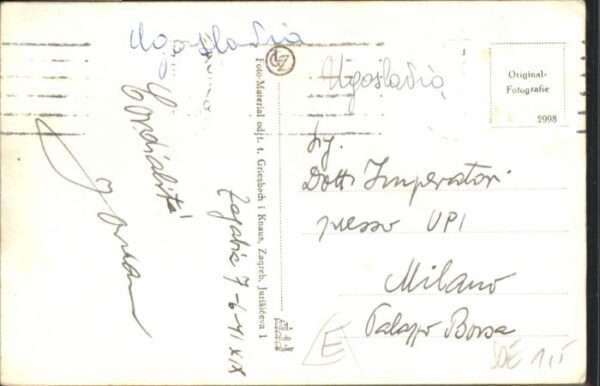 Ugoslavia
Cordialità
Zagabria 7-6-41 XIX
Foto-Material odjt. t. Griesbach i Knaus, Zagreb, Jurišićeva 1
Ugoslavia
Original-
Fotografie
2998
Sig.
Dott. Imperatori
presso UPI
Milano
Palazzo Borsa
E